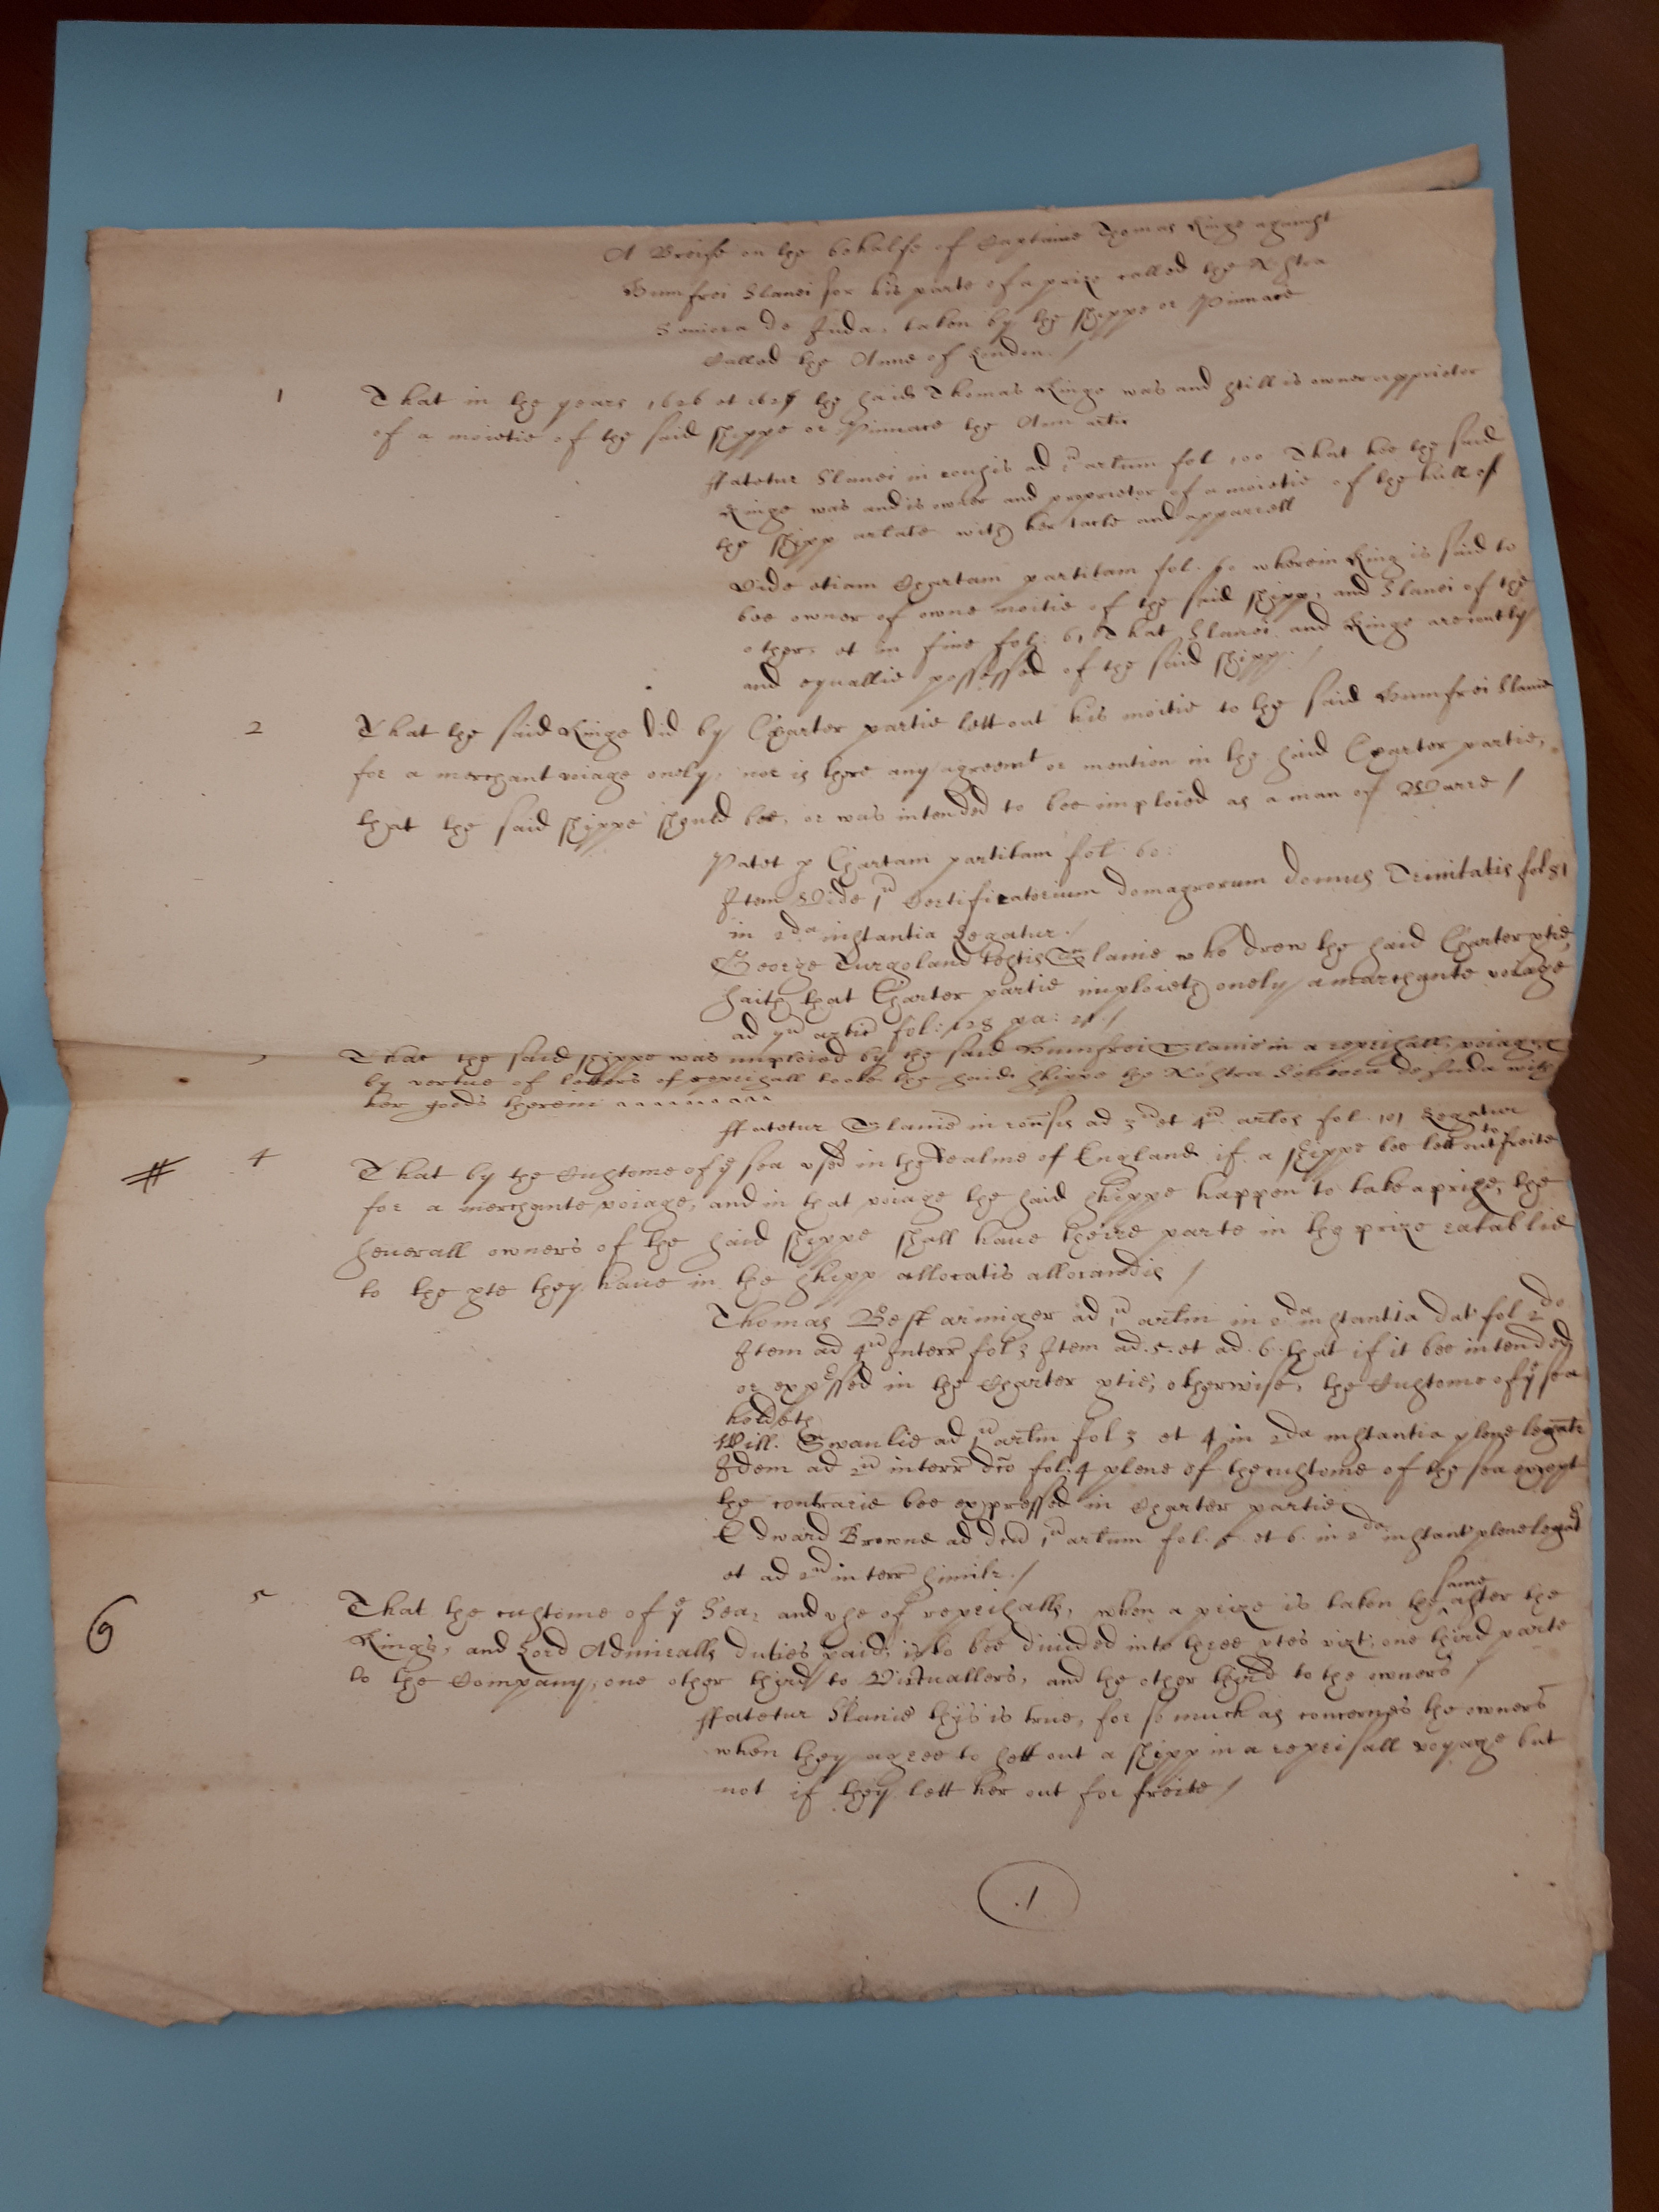 A Breife on the behalfe of Captaine Thomas Kinge against
Humfrei Slanei for his parte of a prize called the Nostra
Seniora de Juda, taken by the shippe or Pinnace
Called the Anne of London./
1 That in the years 1626 et 1627 the said Thomas Kinge was and still is owner
of a moietie of the said shippe or Pinnace the Ann
ffatetur Slanei in ad 1um artlum fol 100 That hee the said
Kinge was and is owner and proprietor of a moietie of the hull of
the shipp arlate with her tacle and apparrell
Vide etiam Chartam partitam fol. 60 wherein King is said to
bee owner of owne moitie of the said shipp, and Slanei of the
other, et in fine fol: 61 That Slanei and Kinge are
and equallie possessed of the said shipp:/
2 That the said Kinge did by Charter partie lett out his moitie to the said Humfrei Slanie
for a merchant voiage onely, nor is there any agreemt or mention in the said Charter partie,
that the said shippe should bee, or was intended to bee imploied as a man of Warre /
Patet p Chartam partitam fol: 60:
Item Vide 1um Certificatorium domus Trinitatis fol 81
in 2da instantia Legatur./
George Turgoland testis Slanie who drew the said Charter ptie,
saith that Charter partie imploieth onely a marchante voiage
ad 7um fol: 128 pa: 21./
3 That the said shippe was imploied by the said Humfrei Slanie in a reprisall voiage
by vertue of letters of reprisall tooke the said shippe the Nostra Seniora de Juda with
her goods therein
ffatetur Slanie in ad 3um et 4um artlos fol. 101 Legatur
# 4 That by the Custome of ye sea vsed in the Realme of England if a shippe bee lett out to freite
for a merchante voiage, and in that voiage the said shippe happen to take a prize, the
seuerall owners of the said shippe shall haue theire parte in the prize ratablie
to the pte they haue in the shipp allocatis allocandis /
Thomas Best armiger ad 1um artlm in 2da instantia dat fol 2do
Item ad 4um Interr fol 3 Item ad. 5. et ad. 6. that if it bee intended
or expressed in the Charter ptie, otherwise, the Custome of ye sea
holdeth
Will. Swanlie ad 1um artlm fol 3 et 4 in 2da instantia plene legatr
Idem ad 2um interr fol: 4 plene of the custome of the sea except
the contrarie bee expressed in Charter partie
Edward Browne ad 1um artlum fol. 5 et 6. in 2da instant plene
et ad 2um interr similr./
6 5 That the custome of ye Sea, and vse of reprisalls, when a prize is taken the same after the
Kings, and Lord Admiralls duties paid, is to bee diuided into three ptes vizt, one third parte
to the Company, one other third to Victuallers, and the other third to the owners /
ffatetur Slanie this is true, for so much as concernes the owners
when they agree to sett out a shipp in a reprisall voyage but
not if they lett her out for freite /
.1